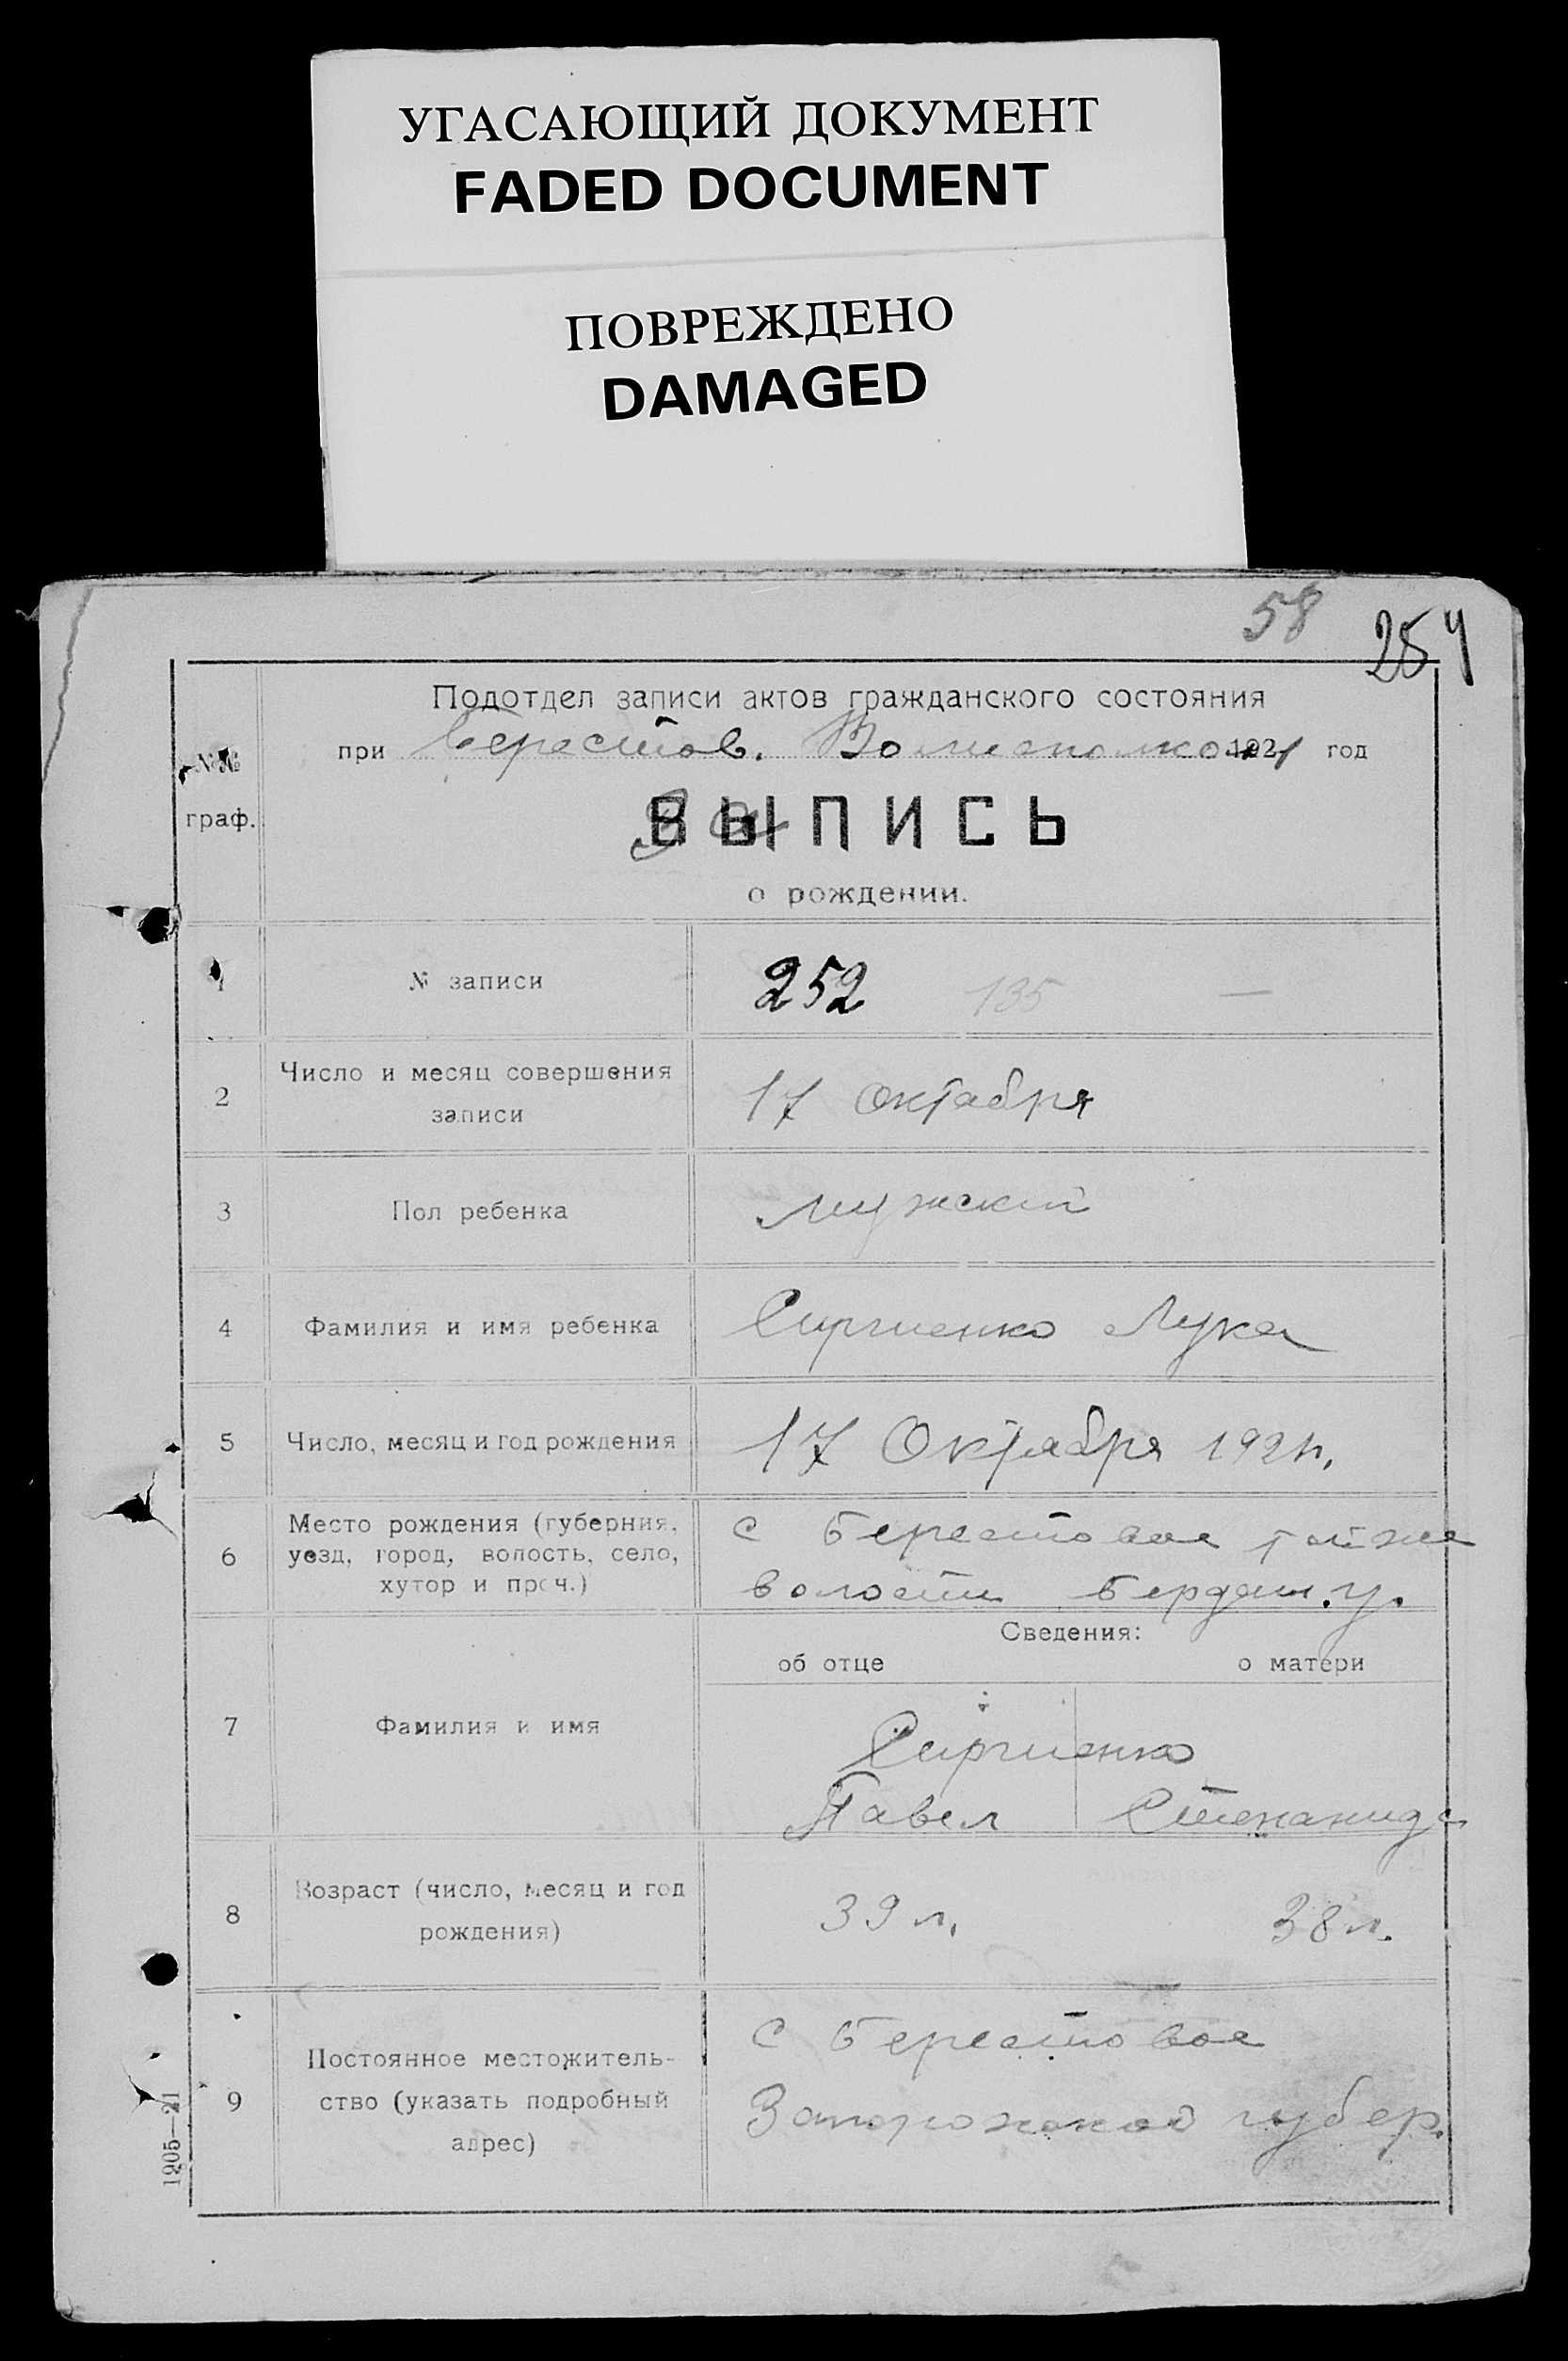 УГАСАЮЩИЙ ДОКУМЕНТ
FADED DOCUMENT
ПОВРЕЖДЕНО
DAMAGED
58
254
Подотдел записи актов гражданского состояния
при Берестов. Волисполком 1921 год
№№
граф.
ВЫПИСЬ
о рождении.
1 № записи 252 135 —
2 Число и месяц совершения
записи
17 Октября
3 Пол ребенка мужский
4 Фамилия и имя ребенка Сиргиенко Лука
5 Число, месяц и год рождения 17 Октября 1921г.
6 Место рождения (губерния,
уезд, город, волость, село,
хутор и проч.)
с Берестовое тойже
волости Бердян. у.
Сведения:
об отце о матери
7 Фамилия и имя
Сиргиенко
Павел Степанида
8 Возраст (число, месяц и год
рождения)
39 л. 38 л.
9 Постоянное местожитель-
ство (указать подробный
адрес)
с Берестовое
Запорожской губер.
1905—21